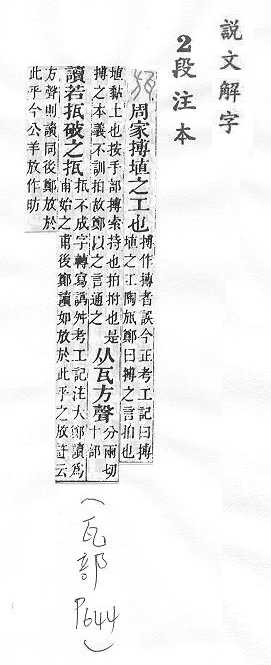 説文解字
2段注本
周家搏埴之工也
搏作摶者誤今正考工記曰搏
埴之工陶瓬鄭曰搏之言拍也
埴黏土也按手部搏索持也拍拊也是
搏之本義不訓拍故鄭以之言通之
从瓦方聲
分兩切
十部
讀若抵破之抵
抵不成字轉寫譌舛考工記注大鄭讀爲
甫始之甫後鄭讀如放於此乎之放許云
方聲則讀同後鄭放於
此乎今公羊放作昉
(瓦部 P644)